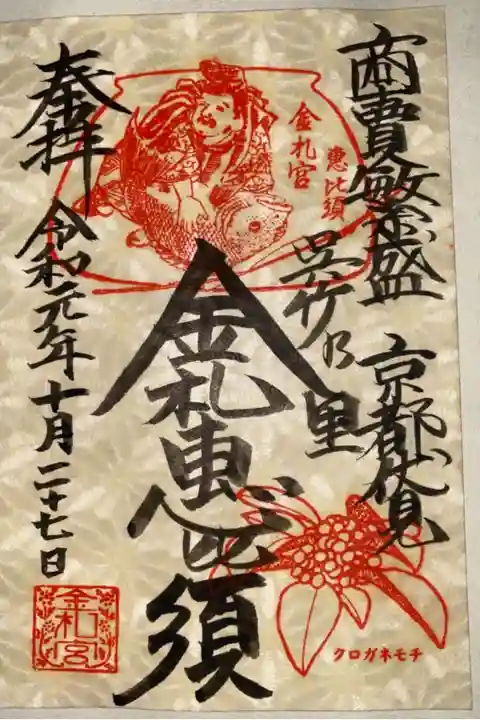 商賣繁盛 京都伏見
呉竹乃里
金札宮
恵比須
金札恵比須
奉拝
令和元年十月二十七日
金札宮
クロガネモチ